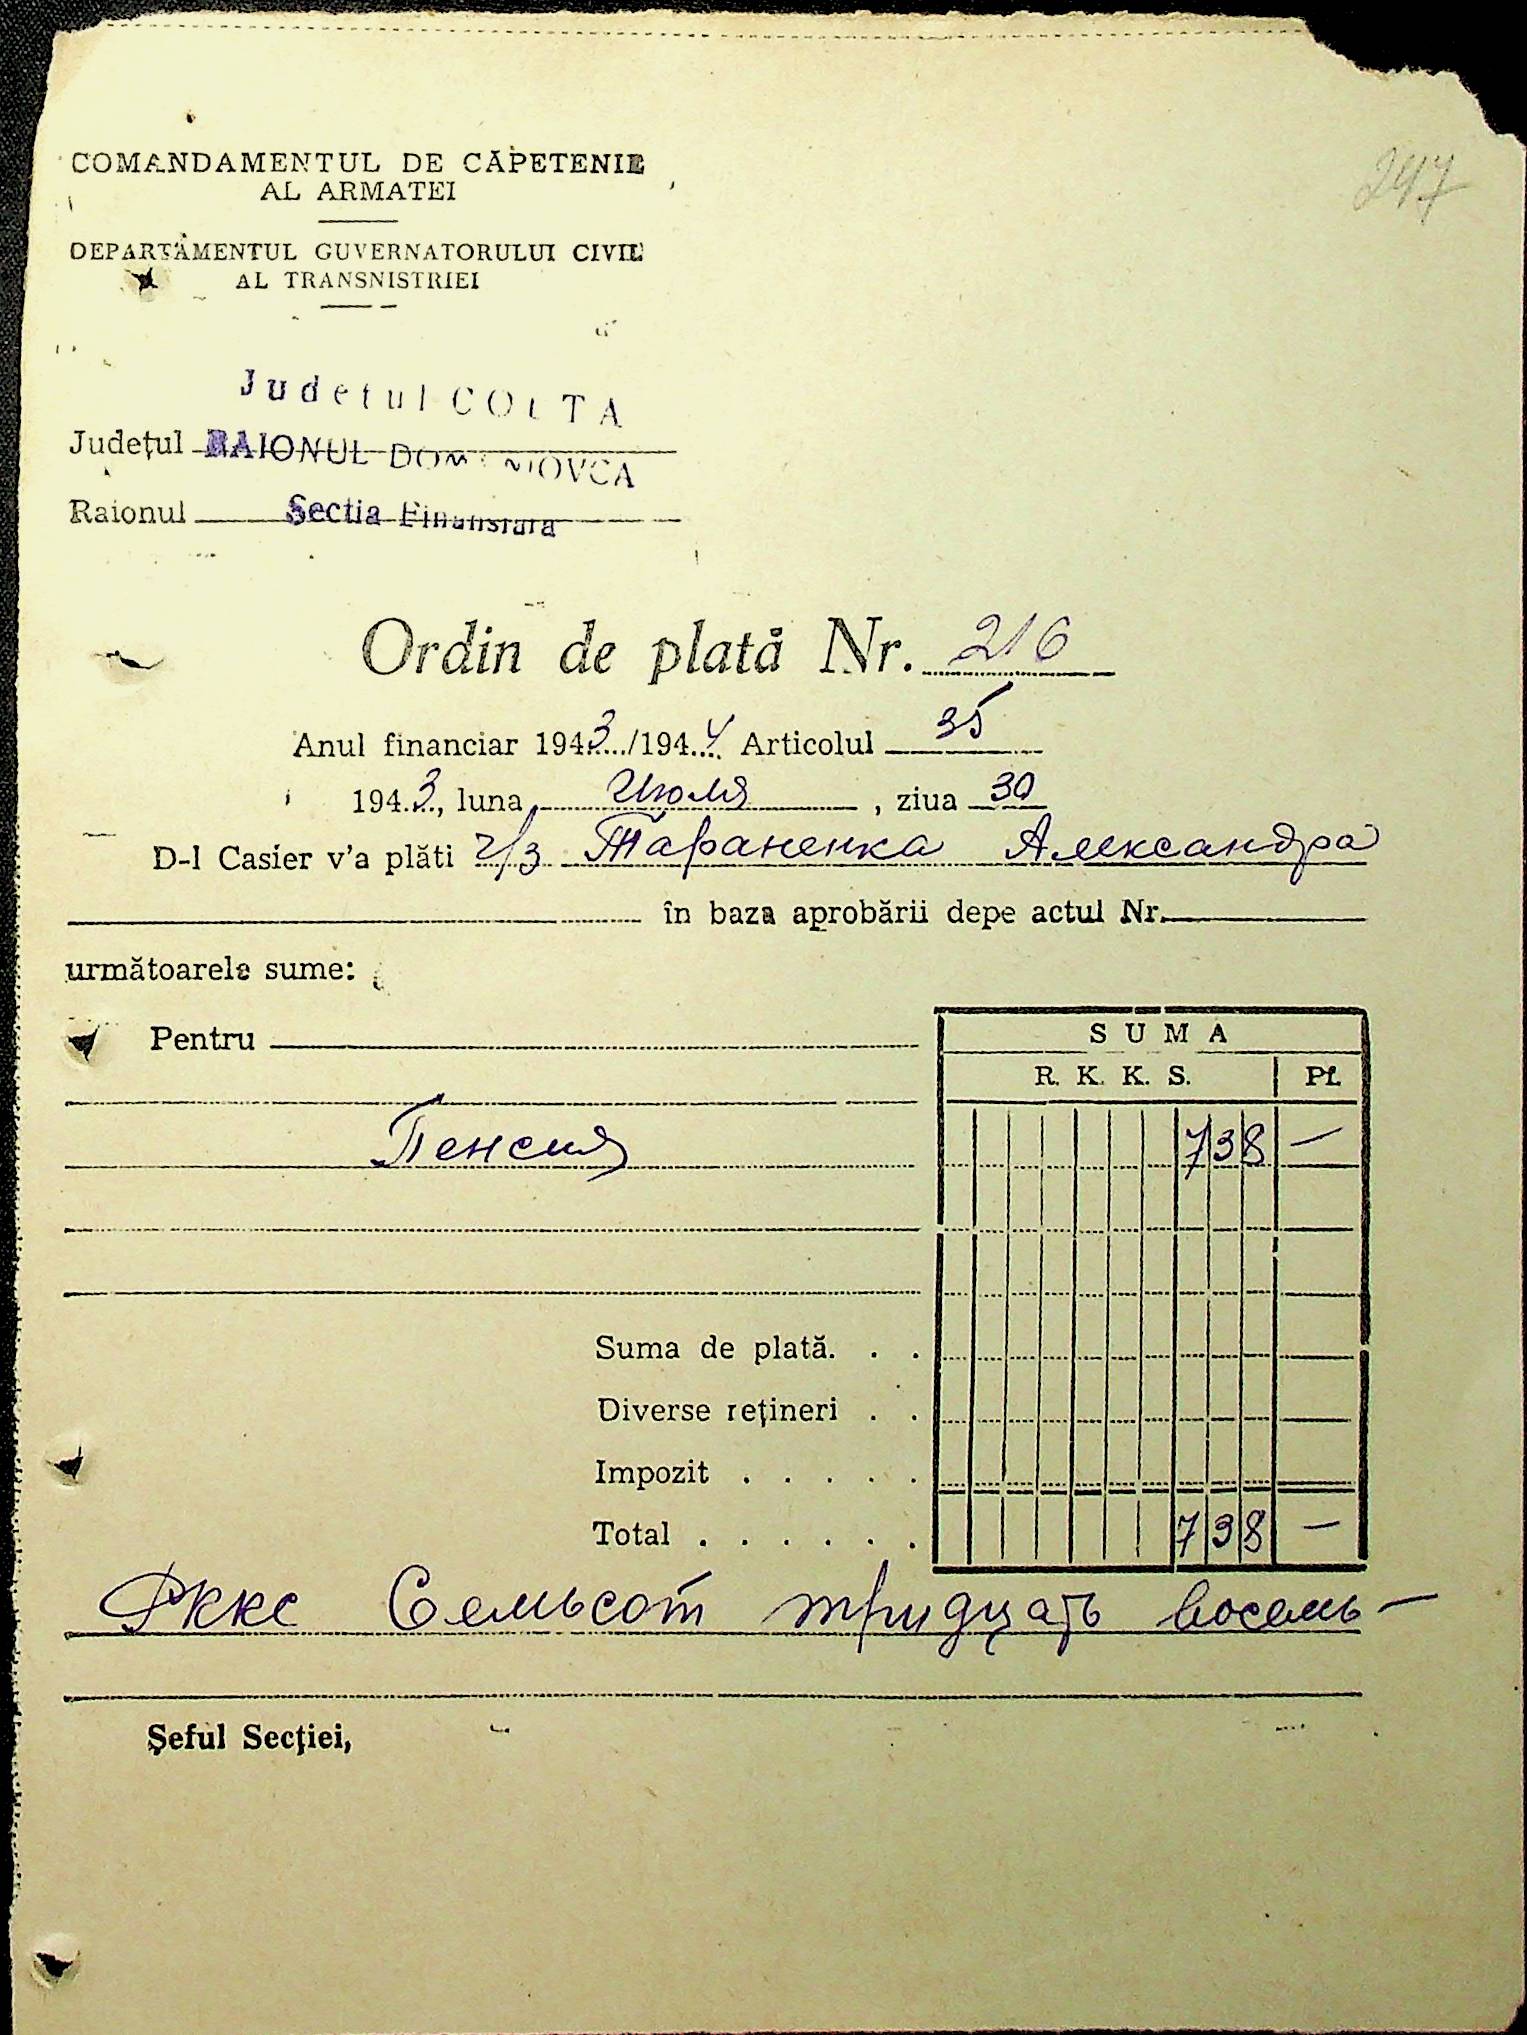 247
COMANDAMENTUL DE CĂPETENIE
AL ARMATEI
DEPARTAMENTUL GUVERNATORULUI CIVIL
AL TRANSNISTRIEI
Judetul COLTA
Județul RAIONUL DOMANIOVCA
Raionul Sectia Finansiara
Ordin de plată Nr. 216
Anul financiar 1943/1944 Articolul 35
1943, luna Июля, ziua 30
D-l Casier v'a plăti ч/з Тараненка Александра
în baza aprobării depe actul Nr.
următoarele sume:
Pentru
SUMA
R. K. K. S. Pf.
Пенсия 738 —
Suma de plată. . .
Diverse rețineri . .
Impozit . . . . .
Total . . . . . . 738 —
Рккс Семьсот тридцать восемь —
Șeful Secției,